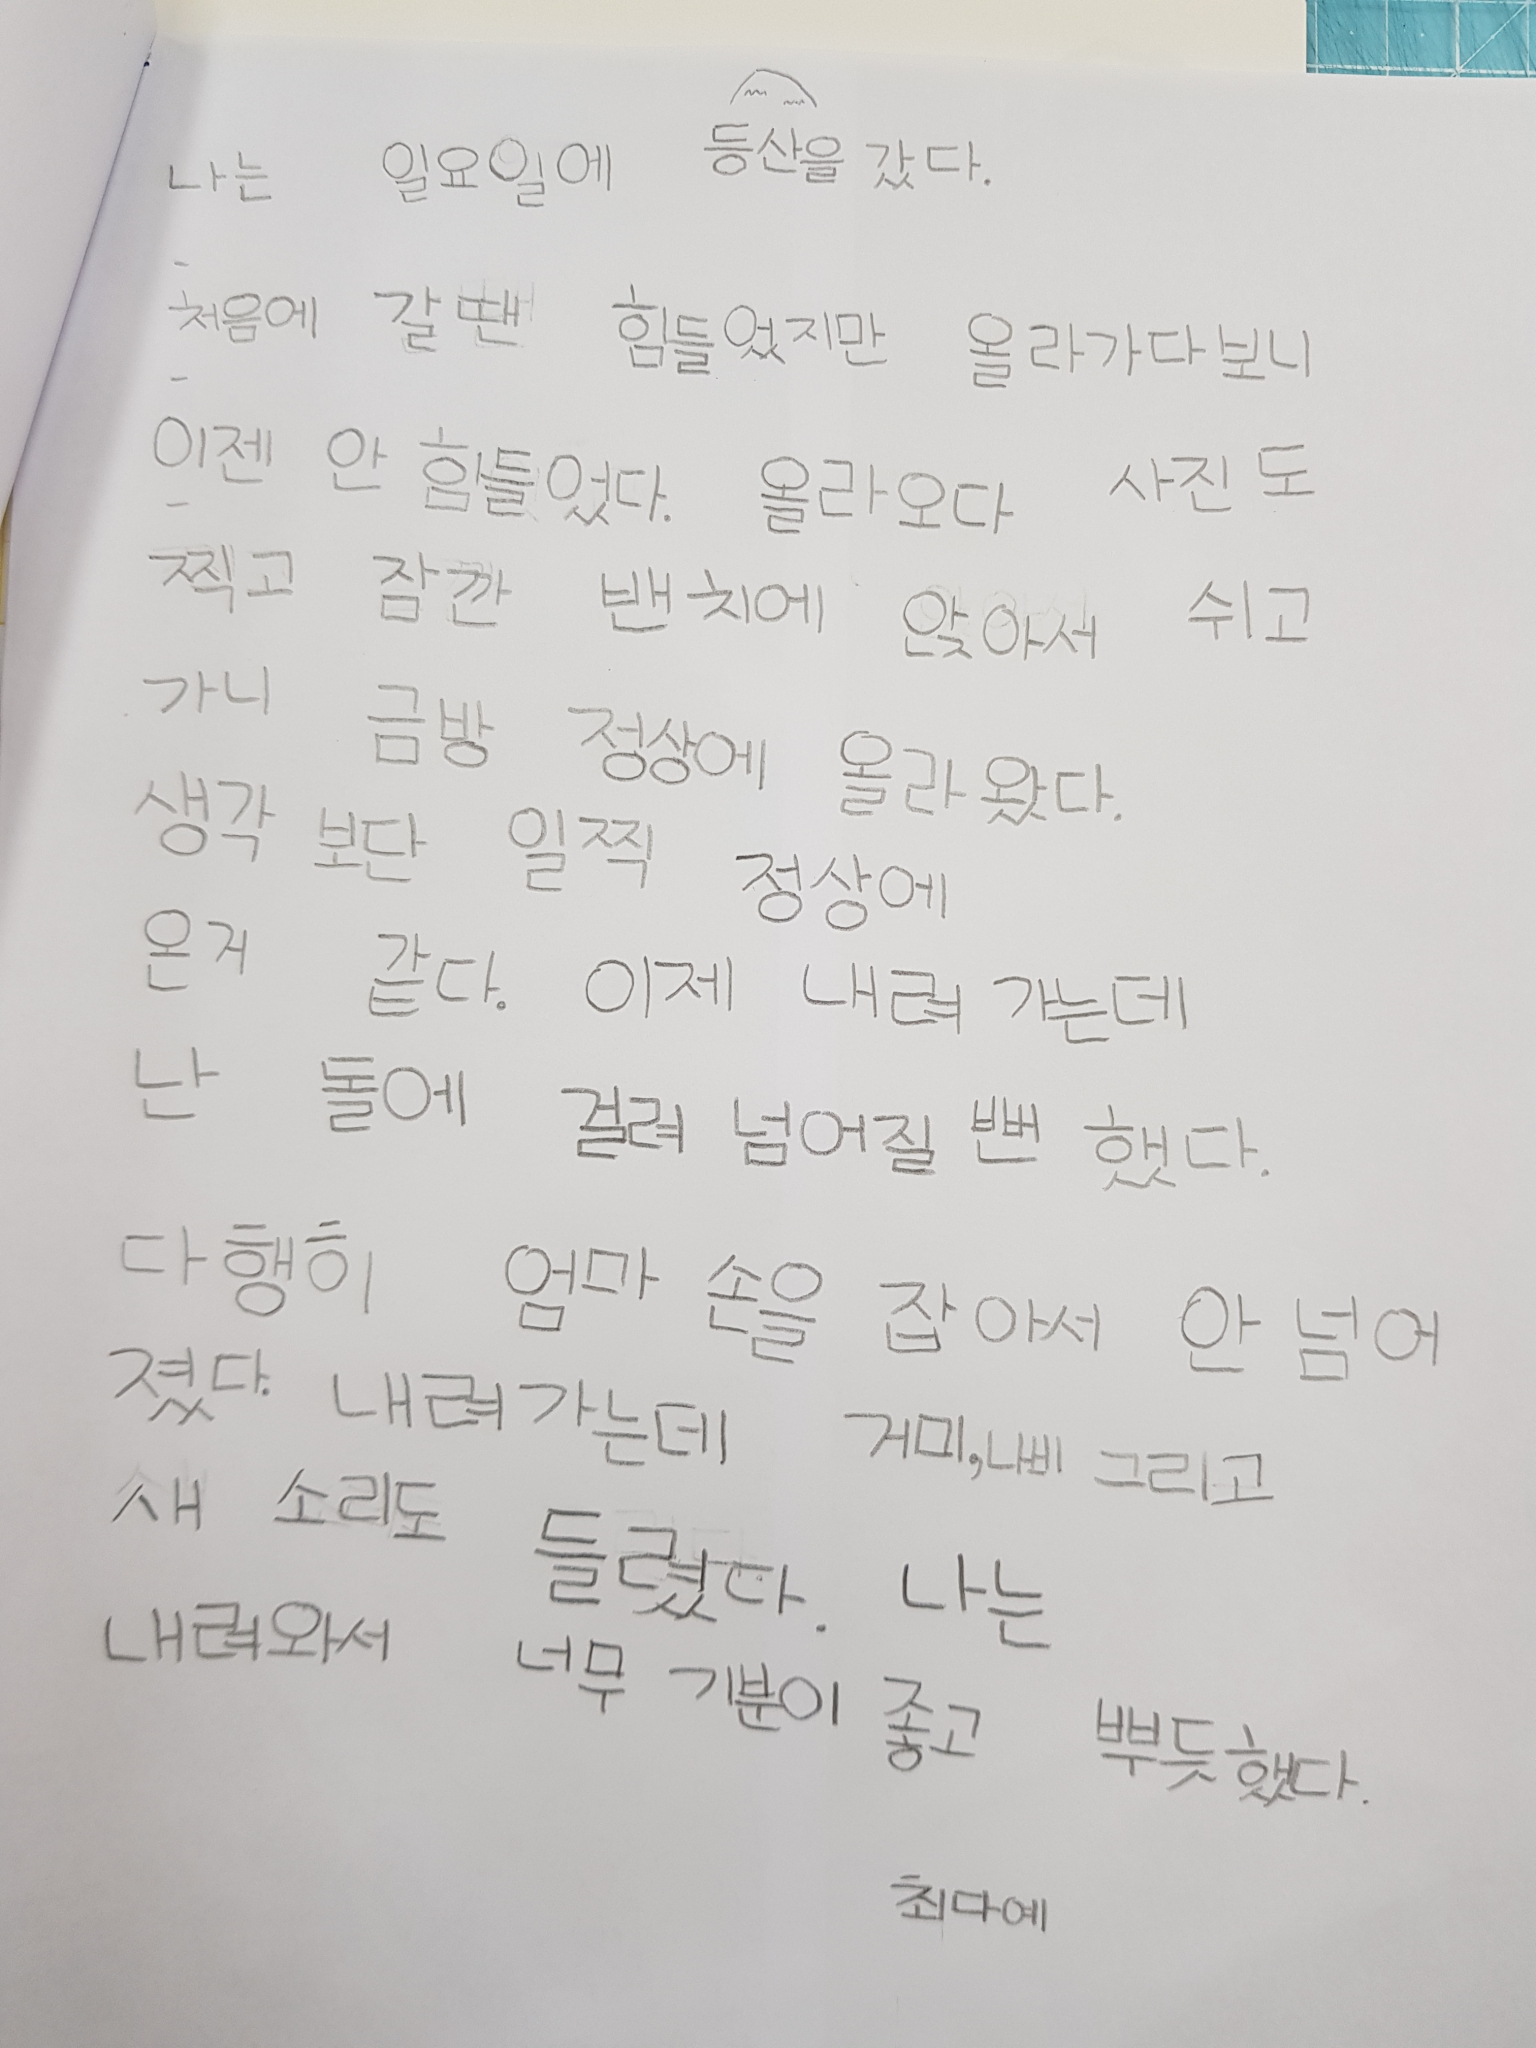 나는 일요일에 등산을 갔다.
처음에 갈땐 힘들었지만 올라가다보니
이젠 안 힘들었다. 올라오다 사진도
찍고 잠깐 밴치에 앉아서 쉬고
가니 금방 정상에 올라왔다.
생각보단 일찍 정상에
온거 같다. 이제 내려가는데
난 돌에 걸려 넘어질 뻔 했다.
다행히 엄마 손을 잡아서 안 넘어
졌다. 내려가는데 거미,나비 그리고
새 소리도 들렸다. 나는
내려와서 너무 기분이 좋고 뿌듯했다.
최다예